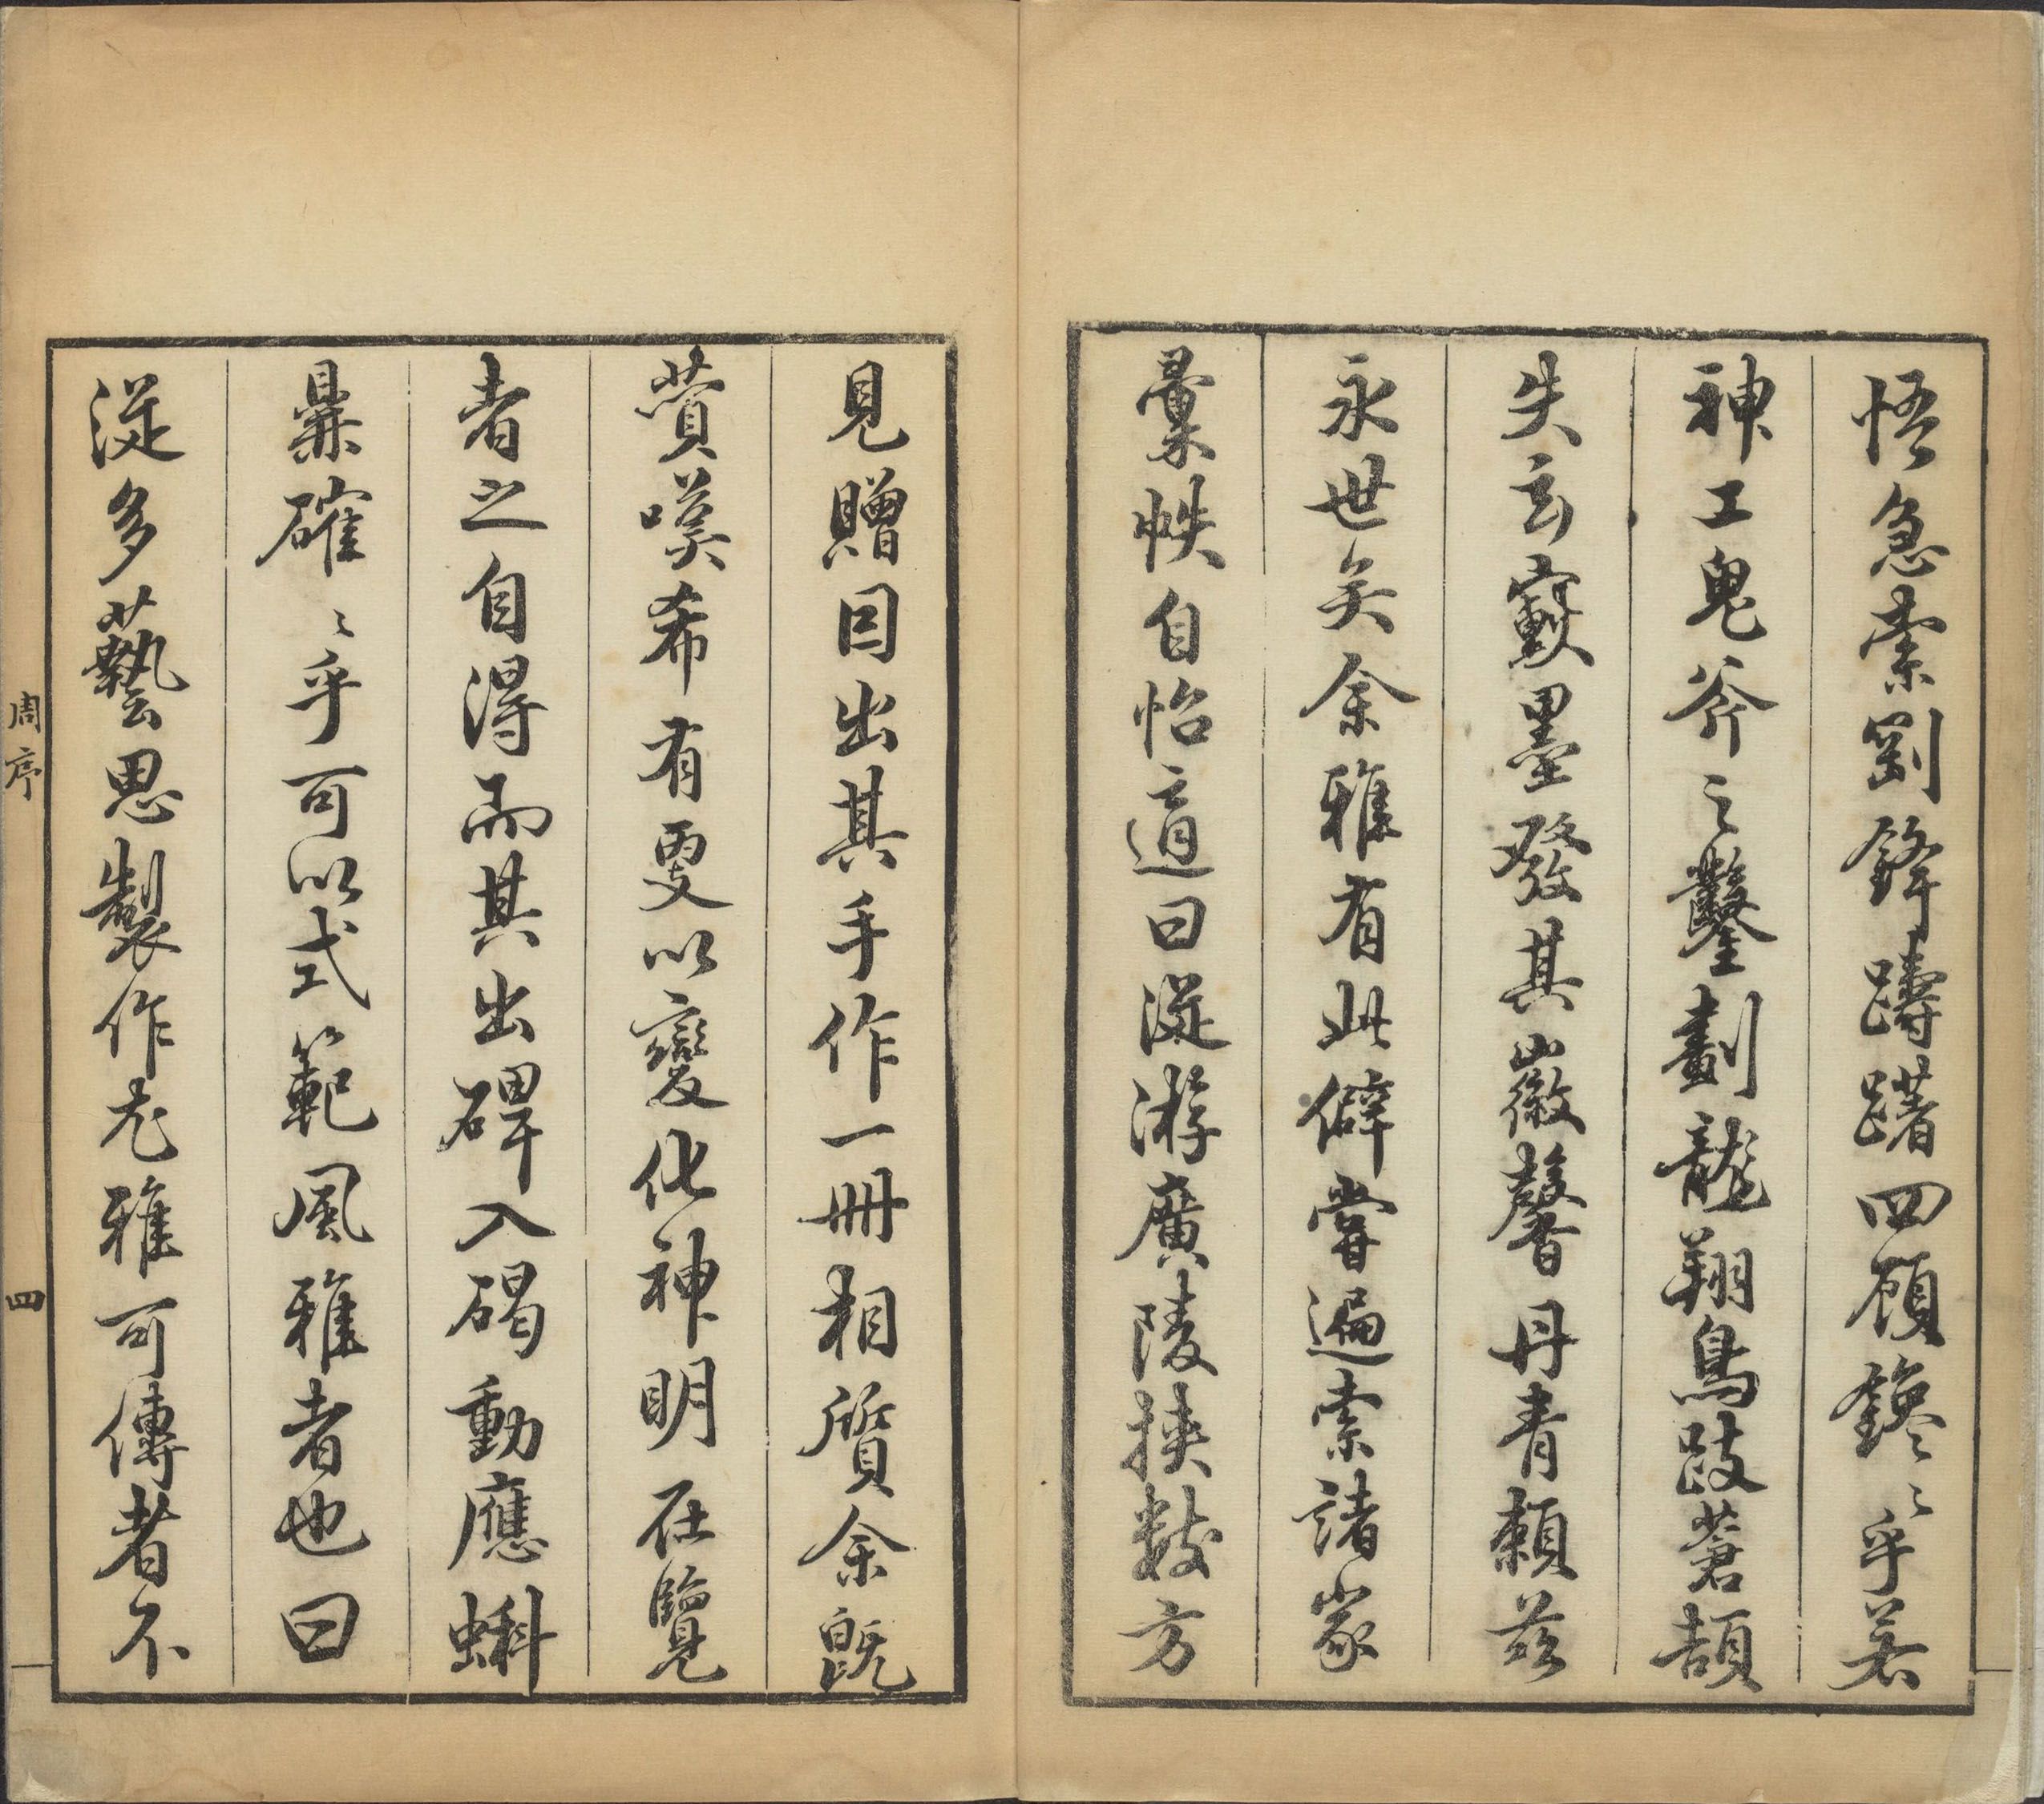 悟急索劉鋒躊躇四顧鑱〻乎若
神工鬼斧之鑿劃龍翔鳥跂蒼頡
失玄竅墨發其徽馨丹青賴茲
永世矣余雅有此僻嘗遍索諸家
彙帙自怡適曰從游廣陵挾數方
見贈因出其手作一冊相質余既
賞嘆希有更以變化神明在覽
者之自得而其出碑入碣動應蝌
鼎確〻乎可以式範風雅者也曰
從多藝思製作尤雅可傳者不
周序
四